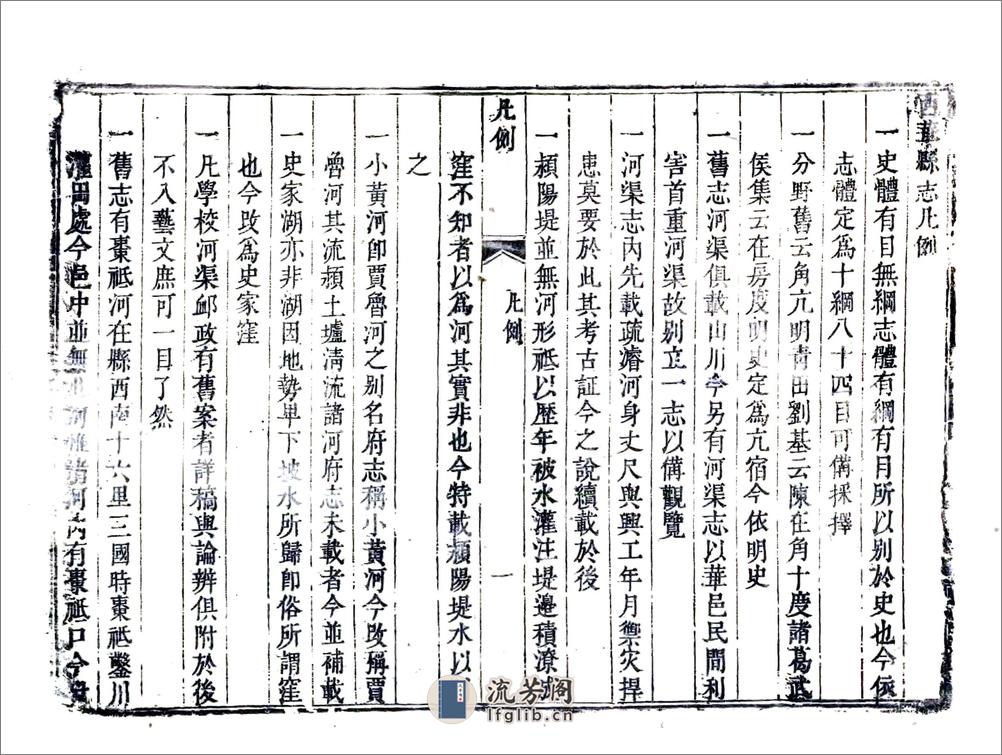 西華縣志凡例
一史體有目無綱志體有綱有目所以别於史也今依
志體定爲十綱八十四目可備採擇
一分野舊云角亢明青田劉基云陳在角十度諸葛武
侯集云在房度明史定爲亢宿今依明史
一舊志河渠俱載山川今另有河渠志以華邑民間利
害首重河渠故别立一志以備觀覽
一河渠志内先載疏濬河身丈尺與興工年月禦灾捍
患莫要於此其考古証今之說續載於後
一潁陽堤並無河形祗以歴年被水灌注堤邊積潦
凡例
凡例
一
窪不知者以爲河其實非也今特載潁陽堤水以
之
一小黄河卽賈魯河之别名府志稱小黄河今改稱賈
魯河其流潁土壚清流諸河府志未載者今並補載
一史家湖亦非湖因地勢卑下坡水所歸卽俗所謂窪
也今改爲史家窪
一凡學校河渠郵政有舊案者詳稿與論辨俱附於後
不入藝文庶可一目了然
一舊志有棗祗河在縣西南十六里三國時棗祗鑿川
灌田處今邑中並無 諸河内有棗祗口今
流芳阁
lfglib.cn